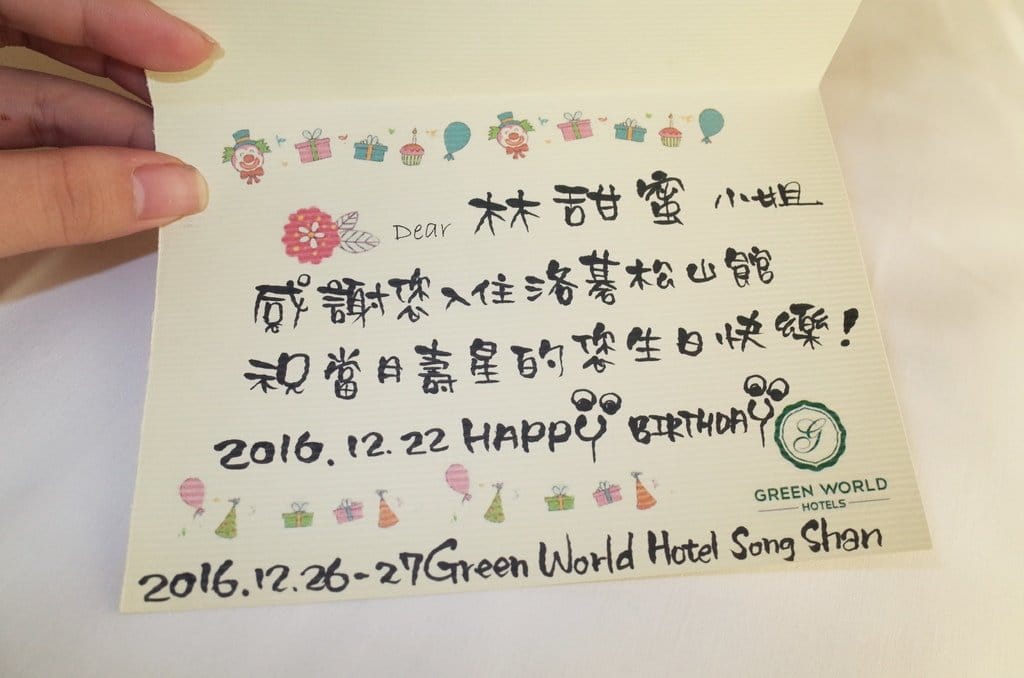 Dear 林甜蜜 小姐
感謝您入住洛碁松山館
祝當月壽星的您生日快樂!
2016.12.22 HAPPY BIRTHDAY
G
GREEN WORLD
HOTELS
2016.12.26-27 Green World Hotel Song Shan